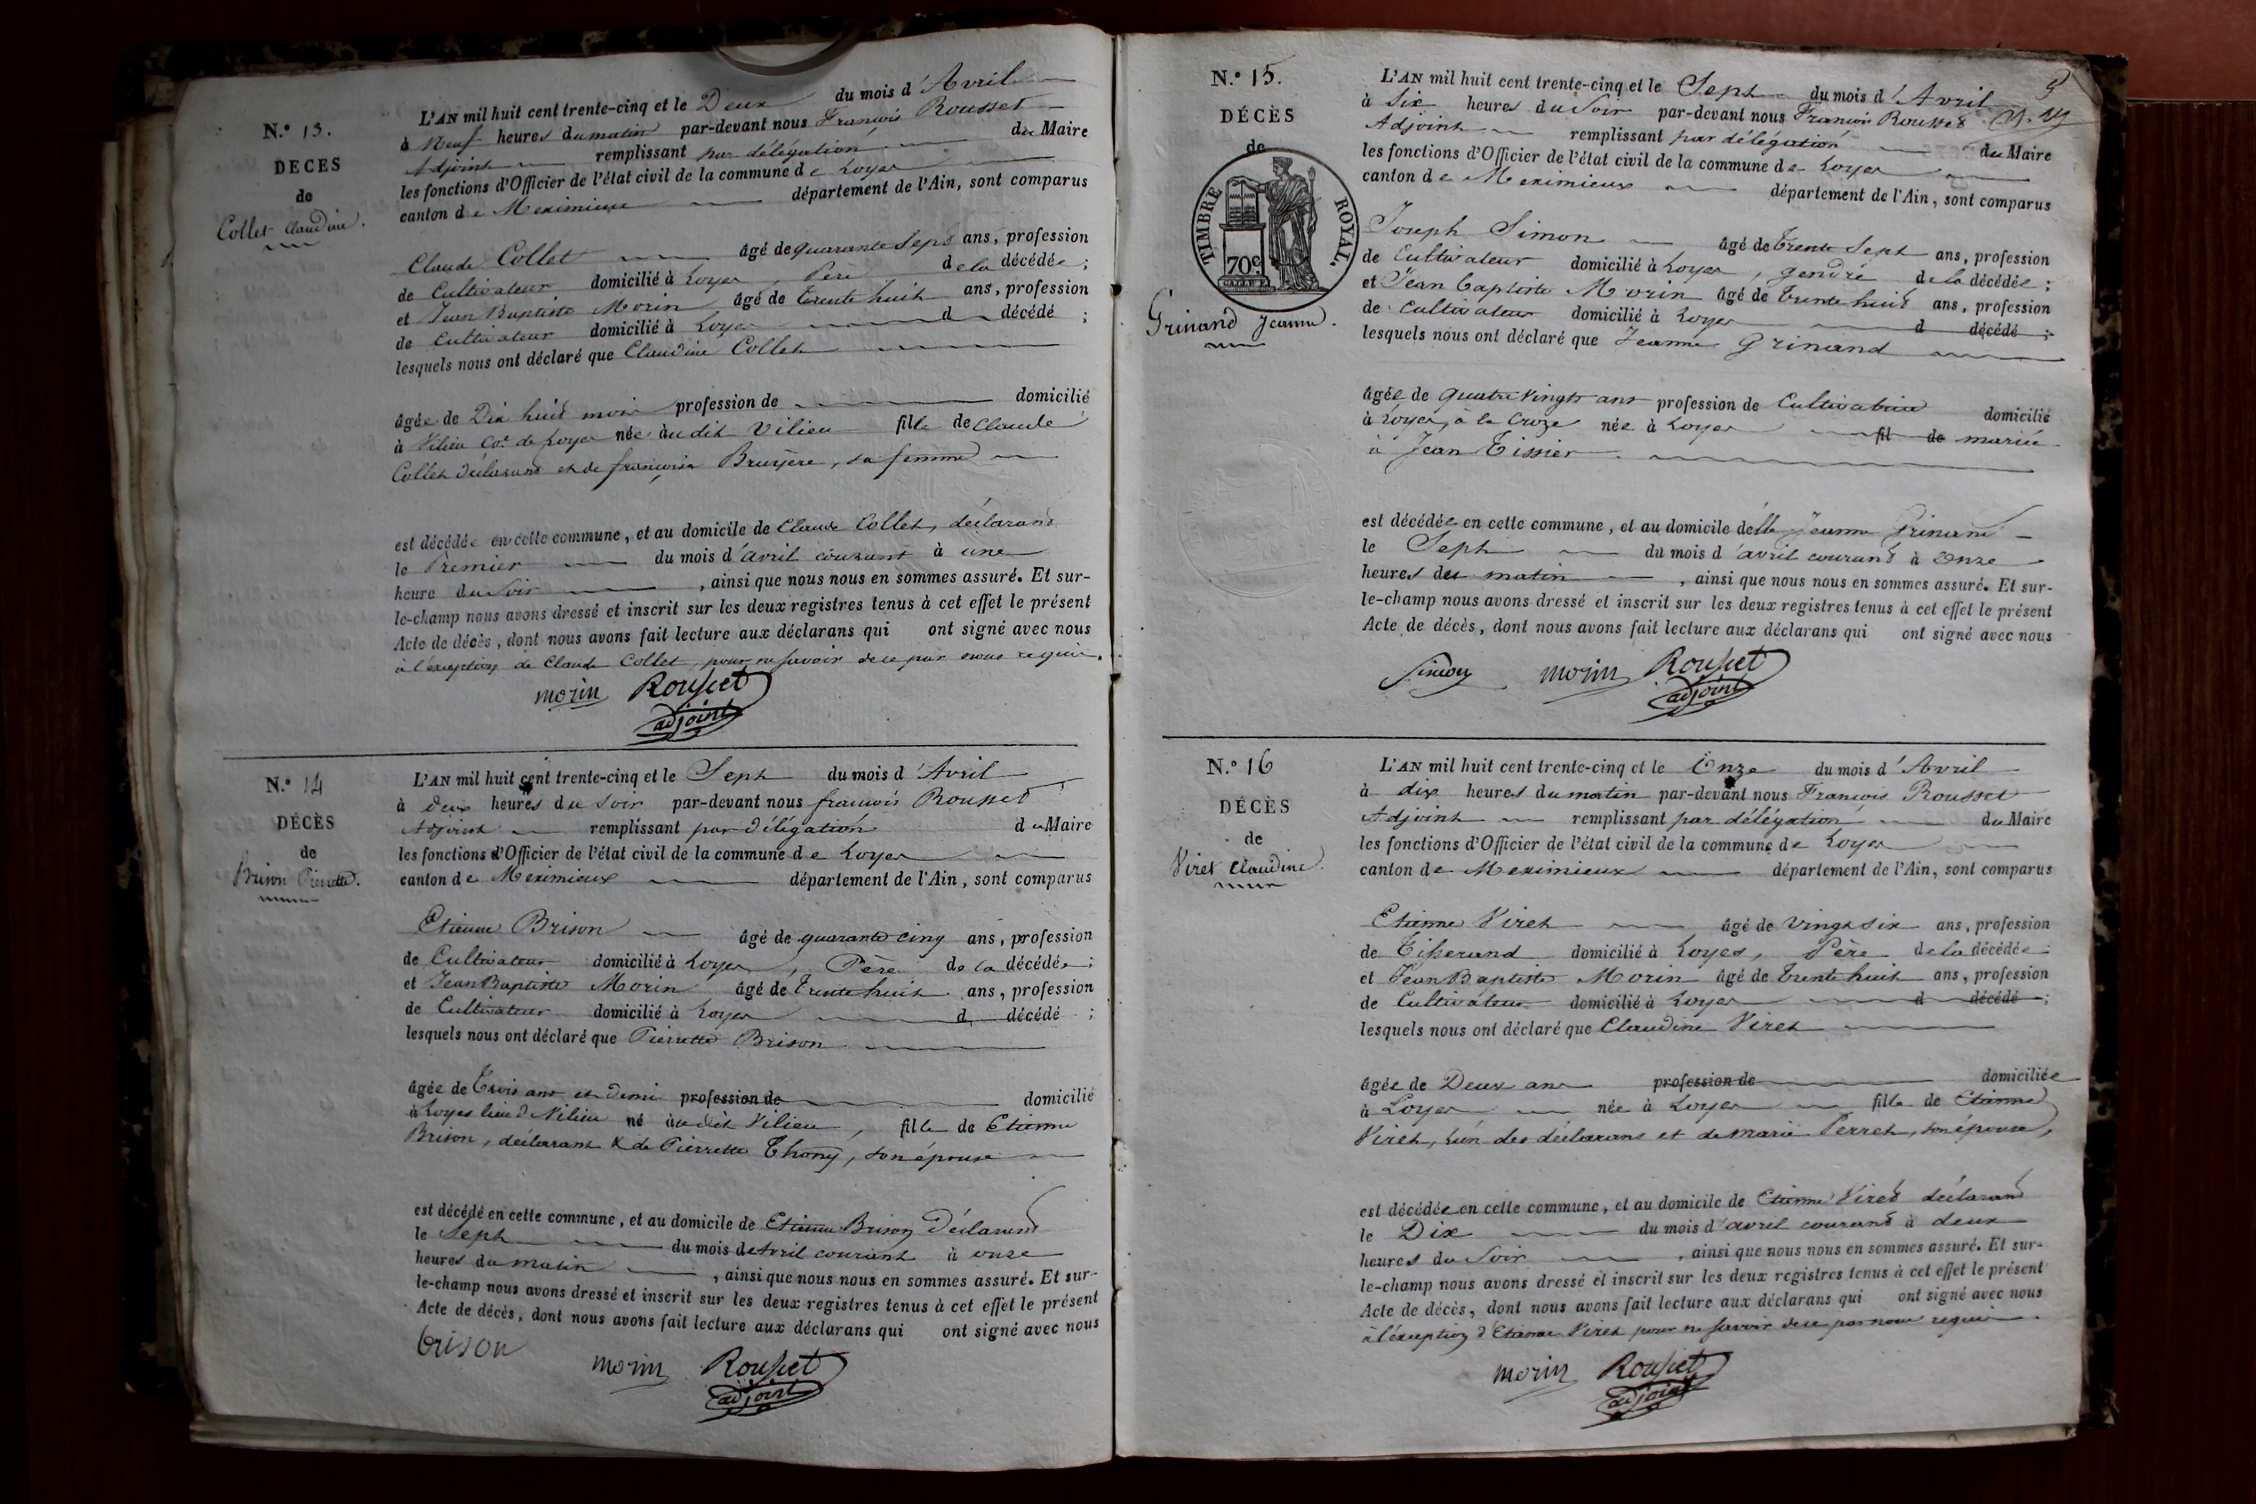 N.º 13.
DÉCÈS
de
Collet Claudine.
L'AN mil huit cent trente-cinq et le Deux du mois d'Avril
à Neuf heures du matin par-devant nous François Rousset
Adjoint remplissant par délégation du Maire
les fonctions d'Officier de l'état civil de la commune de Loyes
canton de Meximieux département de l'Ain, sont comparus
Claude Collet âgé de quarante Sept ans, profession
de Cultivateur domicilié à Loyes, Père de la décédée;
et Jean Baptiste Morin âgé de trente huit ans, profession
de Cultivateur domicilié à Loyes d décédé;
lesquels nous ont déclaré que Claudine Collet
âgée de Dix huit mois profession de domicilié
à Vilieu Cne de Loyes née audit Vilieu fille de Claude
Collet déclarant et de françoise Bruyère, sa femme
est décédée en cette commune, et au domicile de Claude Collet, déclarant
le Premier du mois d'avril courant à une
heure du Soir, ainsi que nous nous en sommes assuré. Et sur-
le-champ nous avons dressé et inscrit sur les deux registres tenus à cet effet le présent
Acte de décès, dont nous avons fait lecture aux déclarans qui ont signé avec nous
à l'exception de Claude Collet, pour ne savoir de ce par nous requis.
morin Rousset
adjoint
N.º 14
DÉCÈS
de
Brison Pierrette.
L'AN mil huit cent trente-cinq et le Sept du mois d'Avril
à deux heures du soir par-devant nous françois Rousset
Adjoint remplissant par délégation du Maire
les fonctions d'Officier de l'état civil de la commune de Loyes
canton de Meximieux département de l'Ain, sont comparus
Etienne Brison âgé de quarante cinq ans, profession
de Cultivateur domicilié à Loyes, Père de la décédée;
et Jean Baptiste Morin âgé de trente huit ans, profession
de Cultivateur domicilié à Loyes d décédé;
lesquels nous ont déclaré que Pierrette Brison
âgée de Trois ans et demi profession de domicilié
à Loyes lieu d Vilieu né audit Vilieu, fille de Etienne
Brison, déclarant & de Pierrette Thony, son épouse
est décédé en cette commune, et au domicile de Etienne Brison Déclarant
le Sept du mois de Avril courant à onze
heures du matin, ainsi que nous nous en sommes assuré. Et sur-
le-champ nous avons dressé et inscrit sur les deux registres tenus à cet effet le présent
Acte de décès, dont nous avons fait lecture aux déclarans qui ont signé avec nous
brison morin Rousset
adjoint
N.º 15.
DÉCÈS
de
TIMBRE ROYAL.
70c
Grinand Jeanne.
L'AN mil huit cent trente-cinq et le Sept du mois d'Avril
à Six heures du Soir par-devant nous François Rousset
Adjoint remplissant par délégation du Maire
les fonctions d'Officier de l'état civil de la commune de Loyes
canton de Meximieux département de l'Ain, sont comparus
Joseph Simon âgé de trente Sept ans, profession
de Cultivateur domicilié à Loyes, gendre de la décédée;
et Jean baptiste Morin âgé de trente huit ans, profession
de cultivateur domicilié à Loyes d décédé;
lesquels nous ont déclaré que Jeanne Grinand
âgée de quatre vingts ans profession de Cultivatrice domicilié
à Loyes, à la Croze née à Loyes fil de mariée
à Jean Tissier.
est décédée en cette commune, et au domicile delle Jeanne Grinand
le Sept du mois d'avril courant à onze
heures du matin, ainsi que nous nous en sommes assuré. Et sur-
le-champ nous avons dressé et inscrit sur les deux registres tenus à cet effet le présent
Acte de décès, dont nous avons fait lecture aux déclarans qui ont signé avec nous
Simon morin Rousset
adjoint
N.º 16
DÉCÈS
de
Viret Claudine.
L'AN mil huit cent trente-cinq et le Onze du mois d'Avril
à dix heures du matin par-devant nous François Rousset
Adjoint remplissant par délégation du Maire
les fonctions d'Officier de l'état civil de la commune de Loyes
canton de Meximieux département de l'Ain, sont comparus
Etienne Viret âgé de vingt six ans, profession
de Tisserand domicilié à Loyes, Père de la décédée;
et Jean Baptiste Morin âgé de trente huit ans, profession
de Cultivateur domicilié à Loyes d décédé;
lesquels nous ont déclaré que Claudine Viret
âgée de Deux ans profession de domiciliée
à Loyes née à Loyes fille de Etienne
Viret, l'un des déclarans et de marie Perret, son épouse,
est décédée en cette commune, et au domicile de Etienne Viret déclarant
le Dix du mois d'avril courant à deux
heures du Soir, ainsi que nous nous en sommes assuré. Et sur-
le-champ nous avons dressé et inscrit sur les deux registres tenus à cet effet le présent
Acte de décès, dont nous avons fait lecture aux déclarans qui ont signé avec nous
à l'exception d'Etienne Viret pour ne savoir de ce par nous requis.
morin Rousset
adjoint